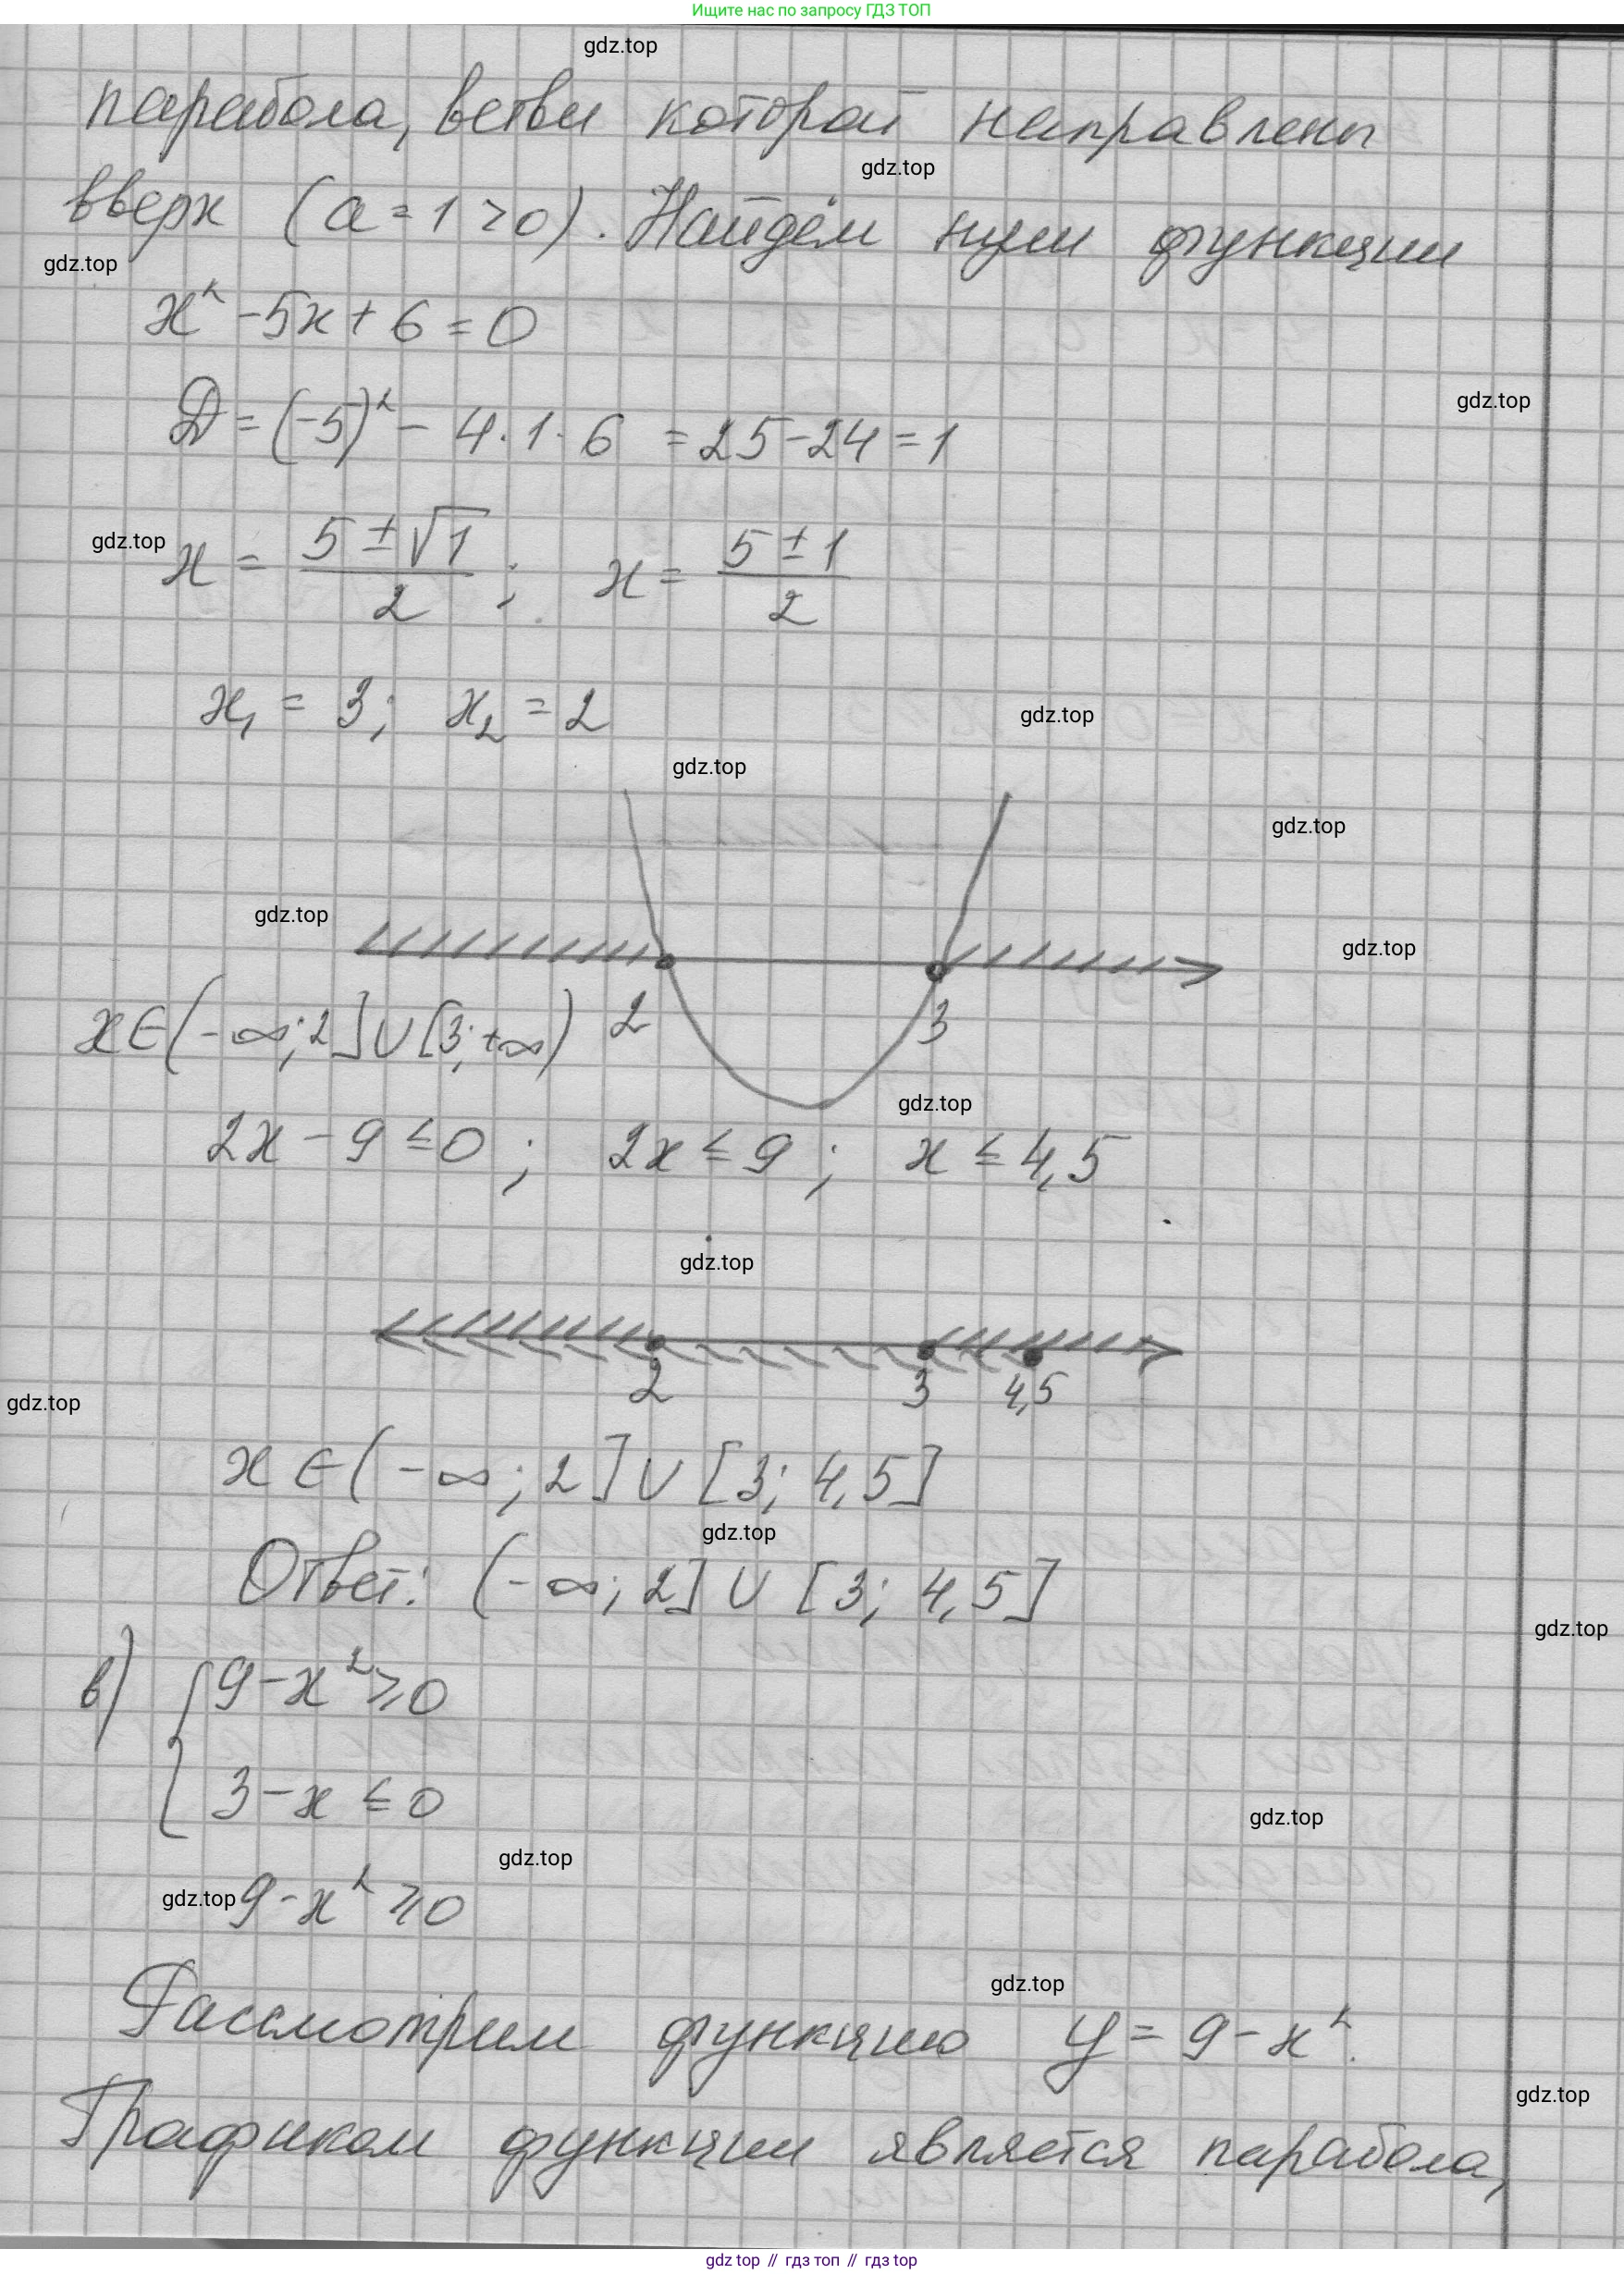 Ищите нас по запросу ГДЗ ТОП
gdz.top
парабола, ветви которой направлены
gdz.top
вверх (a = 1 > 0). Найдём нули функции
gdz.top
x² - 5x + 6 = 0
gdz.top
D = (-5)² - 4·1·6 = 25 - 24 = 1
gdz.top
x = (5 ± √1)/2; x = (5 ± 1)/2
x₁ = 3; x₂ = 2
gdz.top
gdz.top
gdz.top
gdz.top
gdz.top
x ∈ (-∞; 2] ∪ [3; +∞) 2 3
gdz.top
2x - 9 ≤ 0; 2x ≤ 9; x ≤ 4,5
gdz.top
2 3 4,5
gdz.top
x ∈ (-∞; 2] ∪ [3; 4,5]
gdz.top
Ответ: (-∞; 2] ∪ [3; 4,5]
gdz.top
в) { 9 - x² ≥ 0
3 - x ≤ 0
gdz.top
gdz.top
gdz.top 9 - x² ≥ 0
gdz.top
Рассмотрим функцию y = 9 - x².
gdz.top
Графиком функции является парабола,
gdz top // гдз топ // гдз top